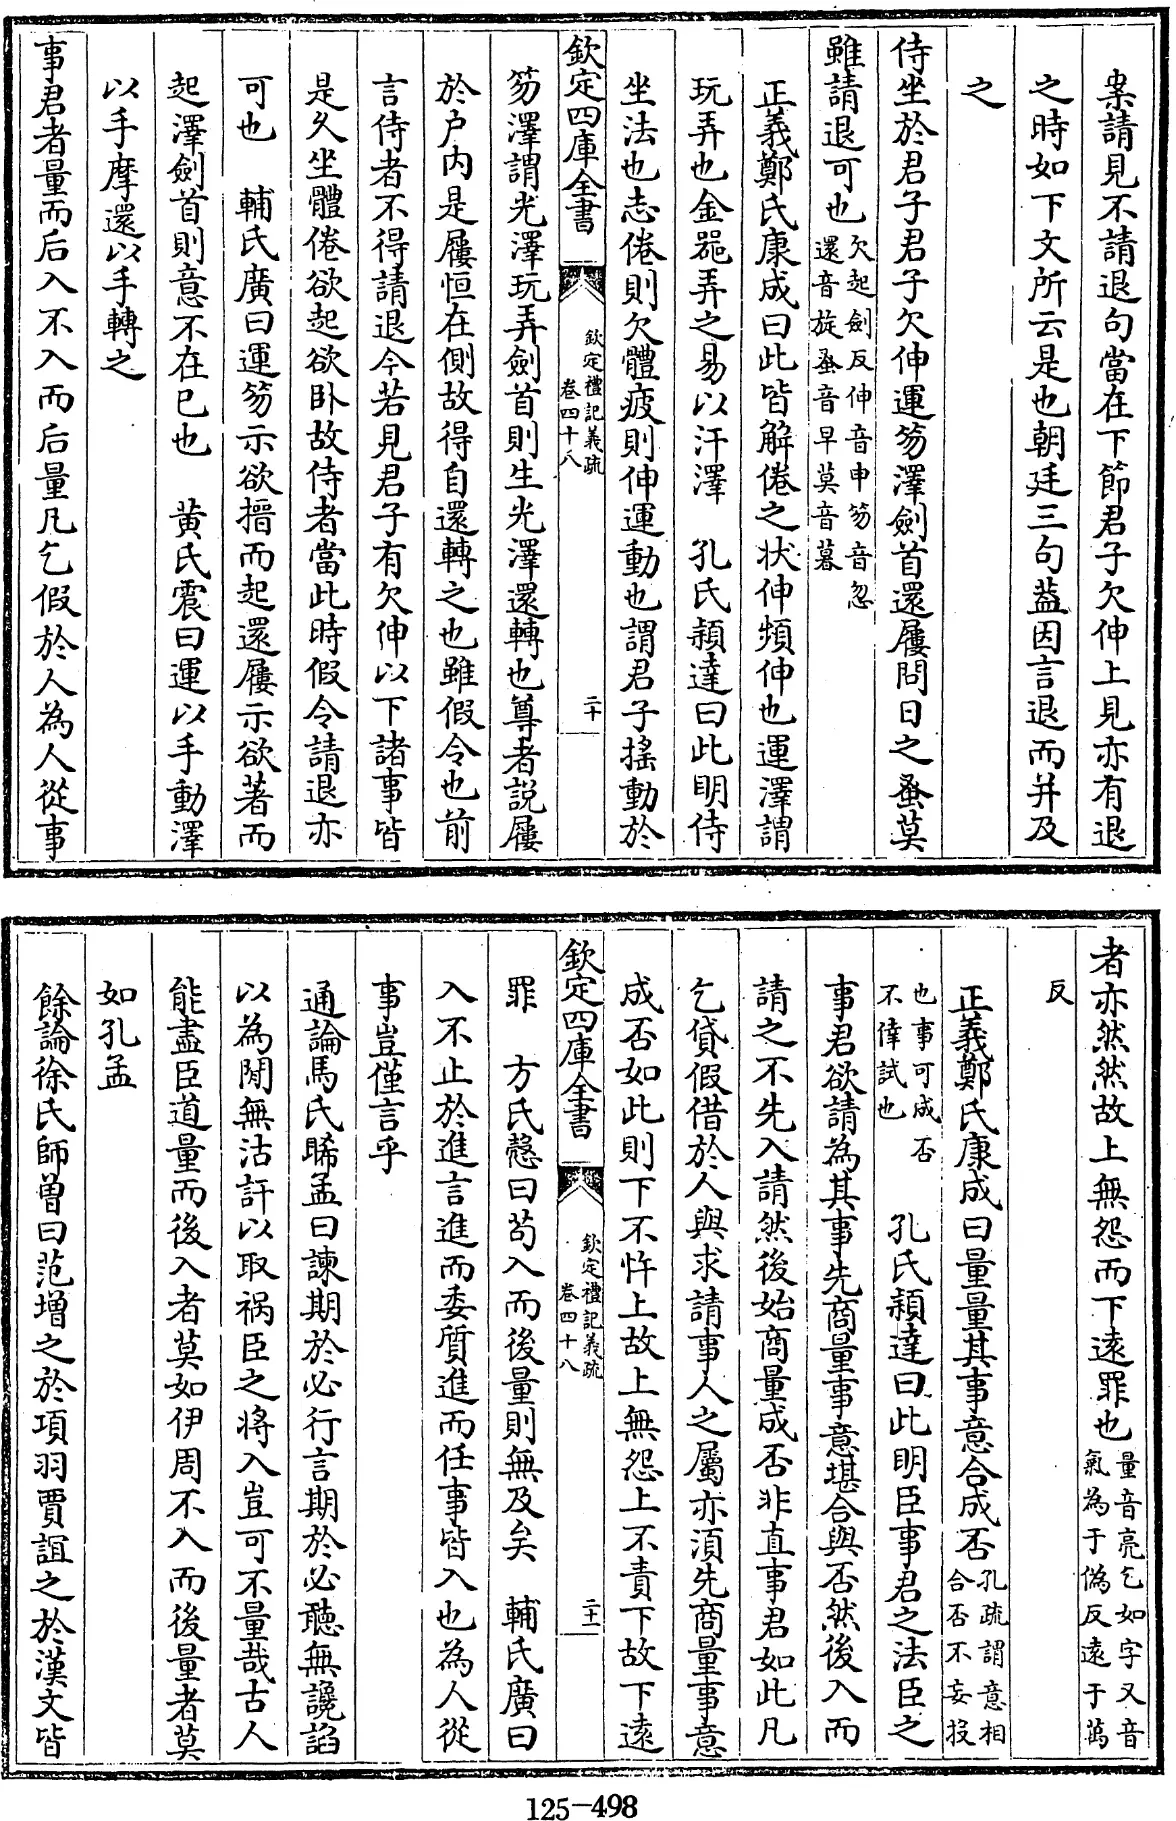 案請見不請退句當在下節君子欠伸上見亦有退
之時如下文所云是也朝廷三句葢因言退而并及
之
侍坐於君子君子欠伸運笏澤劍首還屨問日之蚤莫
雖請退可也欠起劍反伸音申笏音忽
還音旋蚤音早莫音暮
正義鄭氏康成曰此皆解倦之狀伸頻伸也運澤謂
玩弄也金器弄之易以汗澤　孔氏穎達曰此明侍
坐法也志倦則欠體疲則伸運動也謂君子搖動於
欽定四庫全書
欽定禮記義疏
卷四十八
二十
笏澤謂光澤玩弄劍首則生光澤還轉也尊者說屨
於户内是屨恒在側故得自還轉之也雖假令也前
言侍者不得請退今若見君子有欠伸以下諸事皆
是久坐體倦欲起欲卧故侍者當此時假令請退亦
可也　輔氏廣曰運笏示欲搢而起還屨示欲著而
起澤劍首則意不在已也　黄氏震曰運以手動澤
以手摩還以手轉之
事君者量而后入不入而后量凡乞假於人為人從事
者亦然然故上無怨而下逺罪也量音亮乞如字又音
氣為于偽反逺于萬
反
正義鄭氏康成曰量量其事意合成否孔疏謂意相
合否不妄投
也事可成否
不倖試也　孔氏穎達曰此明臣事君之法臣之
事君欲請為其事先商量事意堪合與否然後入而
請之不先入請然後始商量成否非直事君如此凡
乞貸假借於人與求請事人之屬亦須先商量事意
成否如此則下不忤上故上無怨上不責下故下逺
欽定四庫全書
欽定禮記義疏
卷四十八
二十一
罪　方氏慤曰苟入而後量則無及矣　輔氏廣曰
入不止於進言進而委質進而任事皆入也為人從
事豈僅言乎
通論馬氏睎孟曰諫期於必行言期於必聽無讒諂
以為閒無沽訐以取禍臣之將入豈可不量哉古人
能盡臣道量而後入者莫如伊周不入而後量者莫
如孔孟
餘論徐氏師曾曰范增之於項羽賈誼之於漢文皆
125-498